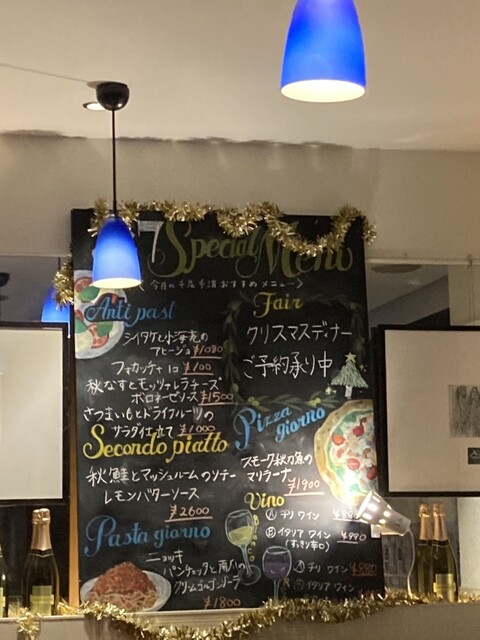 Special Menu
Anti past
シイタケと小海老の
アヒージョ ¥1080
フォカッチャ 1コ ¥100
秋なすとモッツァレラチーズ
ボロネーゼソース ¥1500
さつまいもとドライフルーツの
サラダ仕立て ¥1000
Secondo piatto
秋鮭とマッシュルームのソテー
レモンバターソース
¥2600
Pasta giorno
ニョッキ
パンチェッタと
クリームゴルゴンゾーラ
¥1800
Fair
クリスマスディナー
ご予約承り中
Pizza
giorno
スモーク秋刀魚の
マリナーラ
¥1900
Vino
Ⓐ チリ ワイン
Ⓑ イタリア ワイン ¥990
(すっきり辛口)
チリ ワイン ¥880
イタリア ワイン